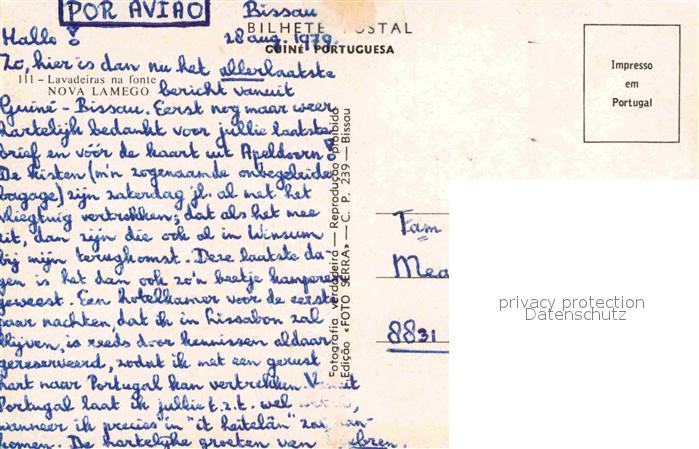 POR AVIÃO
Bissau
BILHETE POSTAL
Hallo! 28 aug. 1979
GUINÉ PORTUGUESA
Zo, hier is dan nu het allerlaatste
111 - Lavadeiras na fonte
NOVA LAMEGO
bericht vanuit
Guiné-Bissau. Eerst nog maar weer
hartelijk bedankt voor jullie laatste
brief en vóór de kaart uit Apeldoorn!
De kisten (m'n zogenaamde onbegeleide
bagage) zijn zaterdag jl. al met het
vliegtuig vertrokken; dat als het mee
zit, dan zijn die ook al in Winsum
bij mijn terugkomst. Deze laatste da-
gen is het dan ook zo'n beetje kamperen
geweest. Een hotelkamer voor de eerste
paar nachten, dat ik in Lissabon zal
blijven, is reeds door kennissen aldaar
gereserveerd, zodat ik met een gerust
hart naar Portugal kan vertrekken. Vanuit
Portugal laat ik jullie t.z.t. wel
wanneer ik precies in "it heitelân" zal aan-
komen. De hartelijke groeten van
Fotografia verdadeira — Reprodução proibida
Edição «FOTO SERRA» — C. P. 239 — Bissau
Impresso
em
Portugal
Fam
Mea
8831
privacy protection
Datenschutz